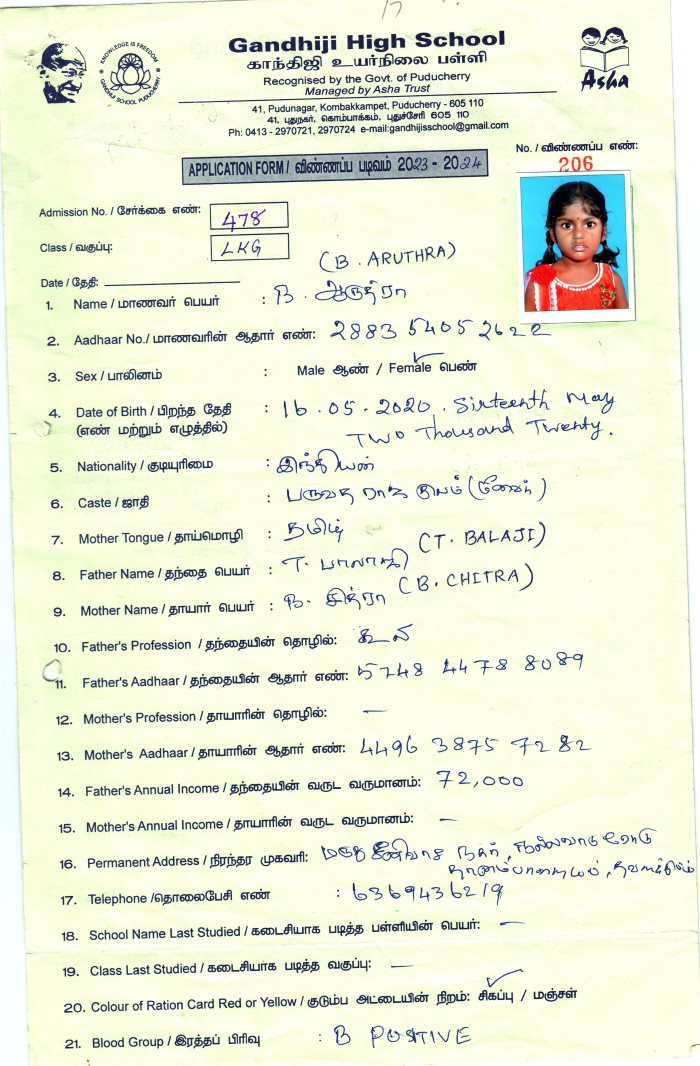 KNOWLEDGE IS FREEDOM
GANDHIJI SCHOOL PUDUCHERRY
Gandhiji High School
காந்திஜி உயர்நிலை பள்ளி
Recognised by the Govt. of Puducherry
Managed by Asha Trust
Asha
41, Pudunagar, Kombakkampet, Puducherry - 605 110
41, புதுநகர், கொம்பாக்கம், புதுச்சேரி 605 110
Ph: 0413 - 2970721, 2970724 e-mail:gandhijisschool@gmail.com
No. / விண்ணப்ப எண்:
206
APPLICATION FORM / விண்ணப்ப படிவம் 2023 - 2024
Admission No. / சேர்க்கை எண்: 478
Class / வகுப்பு: LKG
Date / தேதி:
(B. ARUTHRA)
1. Name / மாணவர் பெயர் : B. ஆருத்ரா
2. Aadhaar No./ மாணவரின் ஆதார் எண்: 2883 5405 2622
3. Sex / பாலினம் : Male ஆண் / Female பெண்
4. Date of Birth / பிறந்த தேதி : 16.05.2020. Sixteenth May
(எண் மற்றும் எழுத்தில்) Two Thousand Twenty.
5. Nationality / குடியுரிமை : இந்தியன்
6. Caste / ஜாதி : பருவத ராஜ குலம்
7. Mother Tongue / தாய்மொழி : தமிழ்
(T. BALAJI)
8. Father Name / தந்தை பெயர் : T. பாலாஜி
(B. CHITRA)
9. Mother Name / தாயார் பெயர் : B. சித்ரா
10. Father's Profession / தந்தையின் தொழில்: கூலி
11. Father's Aadhaar / தந்தையின் ஆதார் எண்: 5748 4478 8089
12. Mother's Profession / தாயாரின் தொழில்: –
13. Mother's Aadhaar / தாயாரின் ஆதார் எண்: 4496 3875 7282
14. Father's Annual Income / தந்தையின் வருட வருமானம்: 72,000
15. Mother's Annual Income / தாயாரின் வருட வருமானம்: –
16. Permanent Address / நிரந்தர முகவரி: நகர்,
17. Telephone /தொலைபேசி எண் : 6369436219
18. School Name Last Studied / கடைசியாக படித்த பள்ளியின் பெயர்: –
19. Class Last Studied / கடைசியாக படித்த வகுப்பு: –
20. Colour of Ration Card Red or Yellow / குடும்ப அட்டையின் நிறம்: சிகப்பு / மஞ்சள்
21. Blood Group / இரத்தப் பிரிவு : B POSITIVE